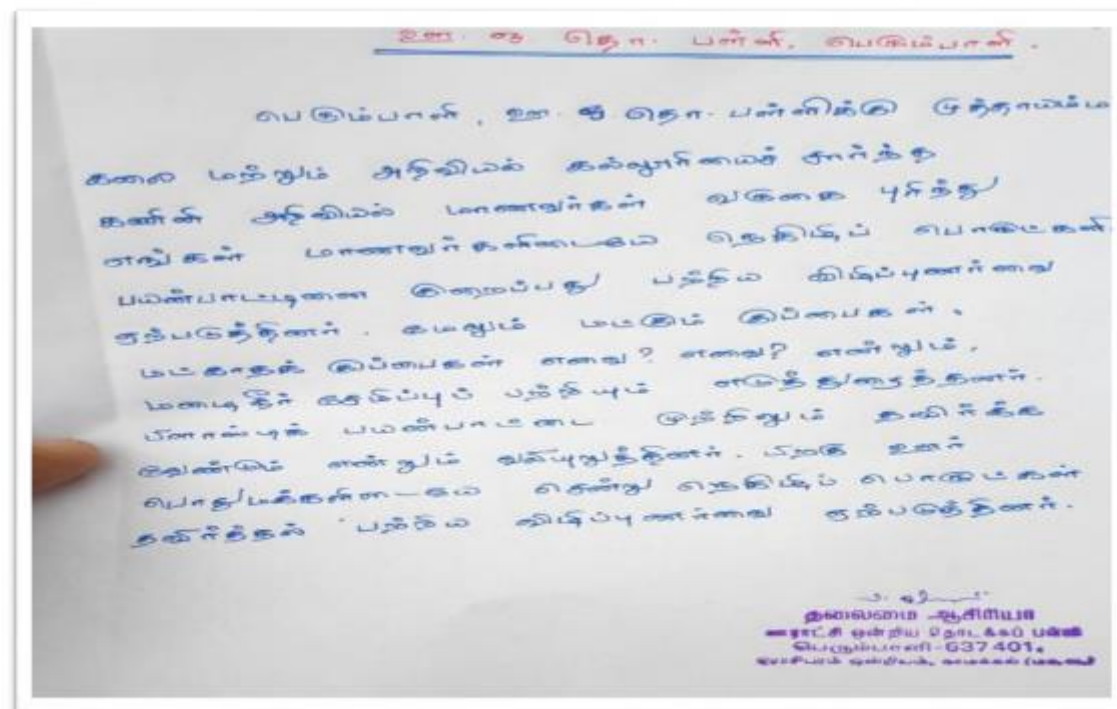 ஊ. ஒ தொ. பள்ளி, பெரும்பாளி.
பெரும்பாளி, ஊ. ஒ தொ. பள்ளிக்கு முத்தாயம்ம
கலை மற்றும் அறிவியல் கல்லூரியைச் சார்ந்த
கணினி அறிவியல் மாணவர்கள் வருகை புரிந்து
எங்கள் மாணவர்களிடையே நெகிழிப் பொருட்களி
பயன்பாட்டினை குறைப்பது பற்றிய விழிப்புணர்வை
ஏற்படுத்தினர். மேலும் மட்கும் குப்பைகள்,
மட்காதக் குப்பைகள் எவை? எவை? என்றும்,
மழைநீர் சேமிப்புப் பற்றியும் எடுத்துரைத்தனர்.
பிளாஸ்டிக் பயன்பாட்டை முற்றிலும் தவிர்க்க
வேண்டும் என்றும் வலியுறுத்தினர். பிறகு ஊர்
பொதுமக்களிடையே சென்று நெகிழிப் பொருட்கள்
தவிர்த்தல் பற்றிய விழிப்புணர்வை ஏற்படுத்தினர்.
தலைமை ஆசிரியர்
ஊராட்சி ஒன்றிய தொடக்கப் பள்ளி
பெரும்பாளி-637 401.
இராசிபுரம் ஒன்றியம், நாமக்கல்